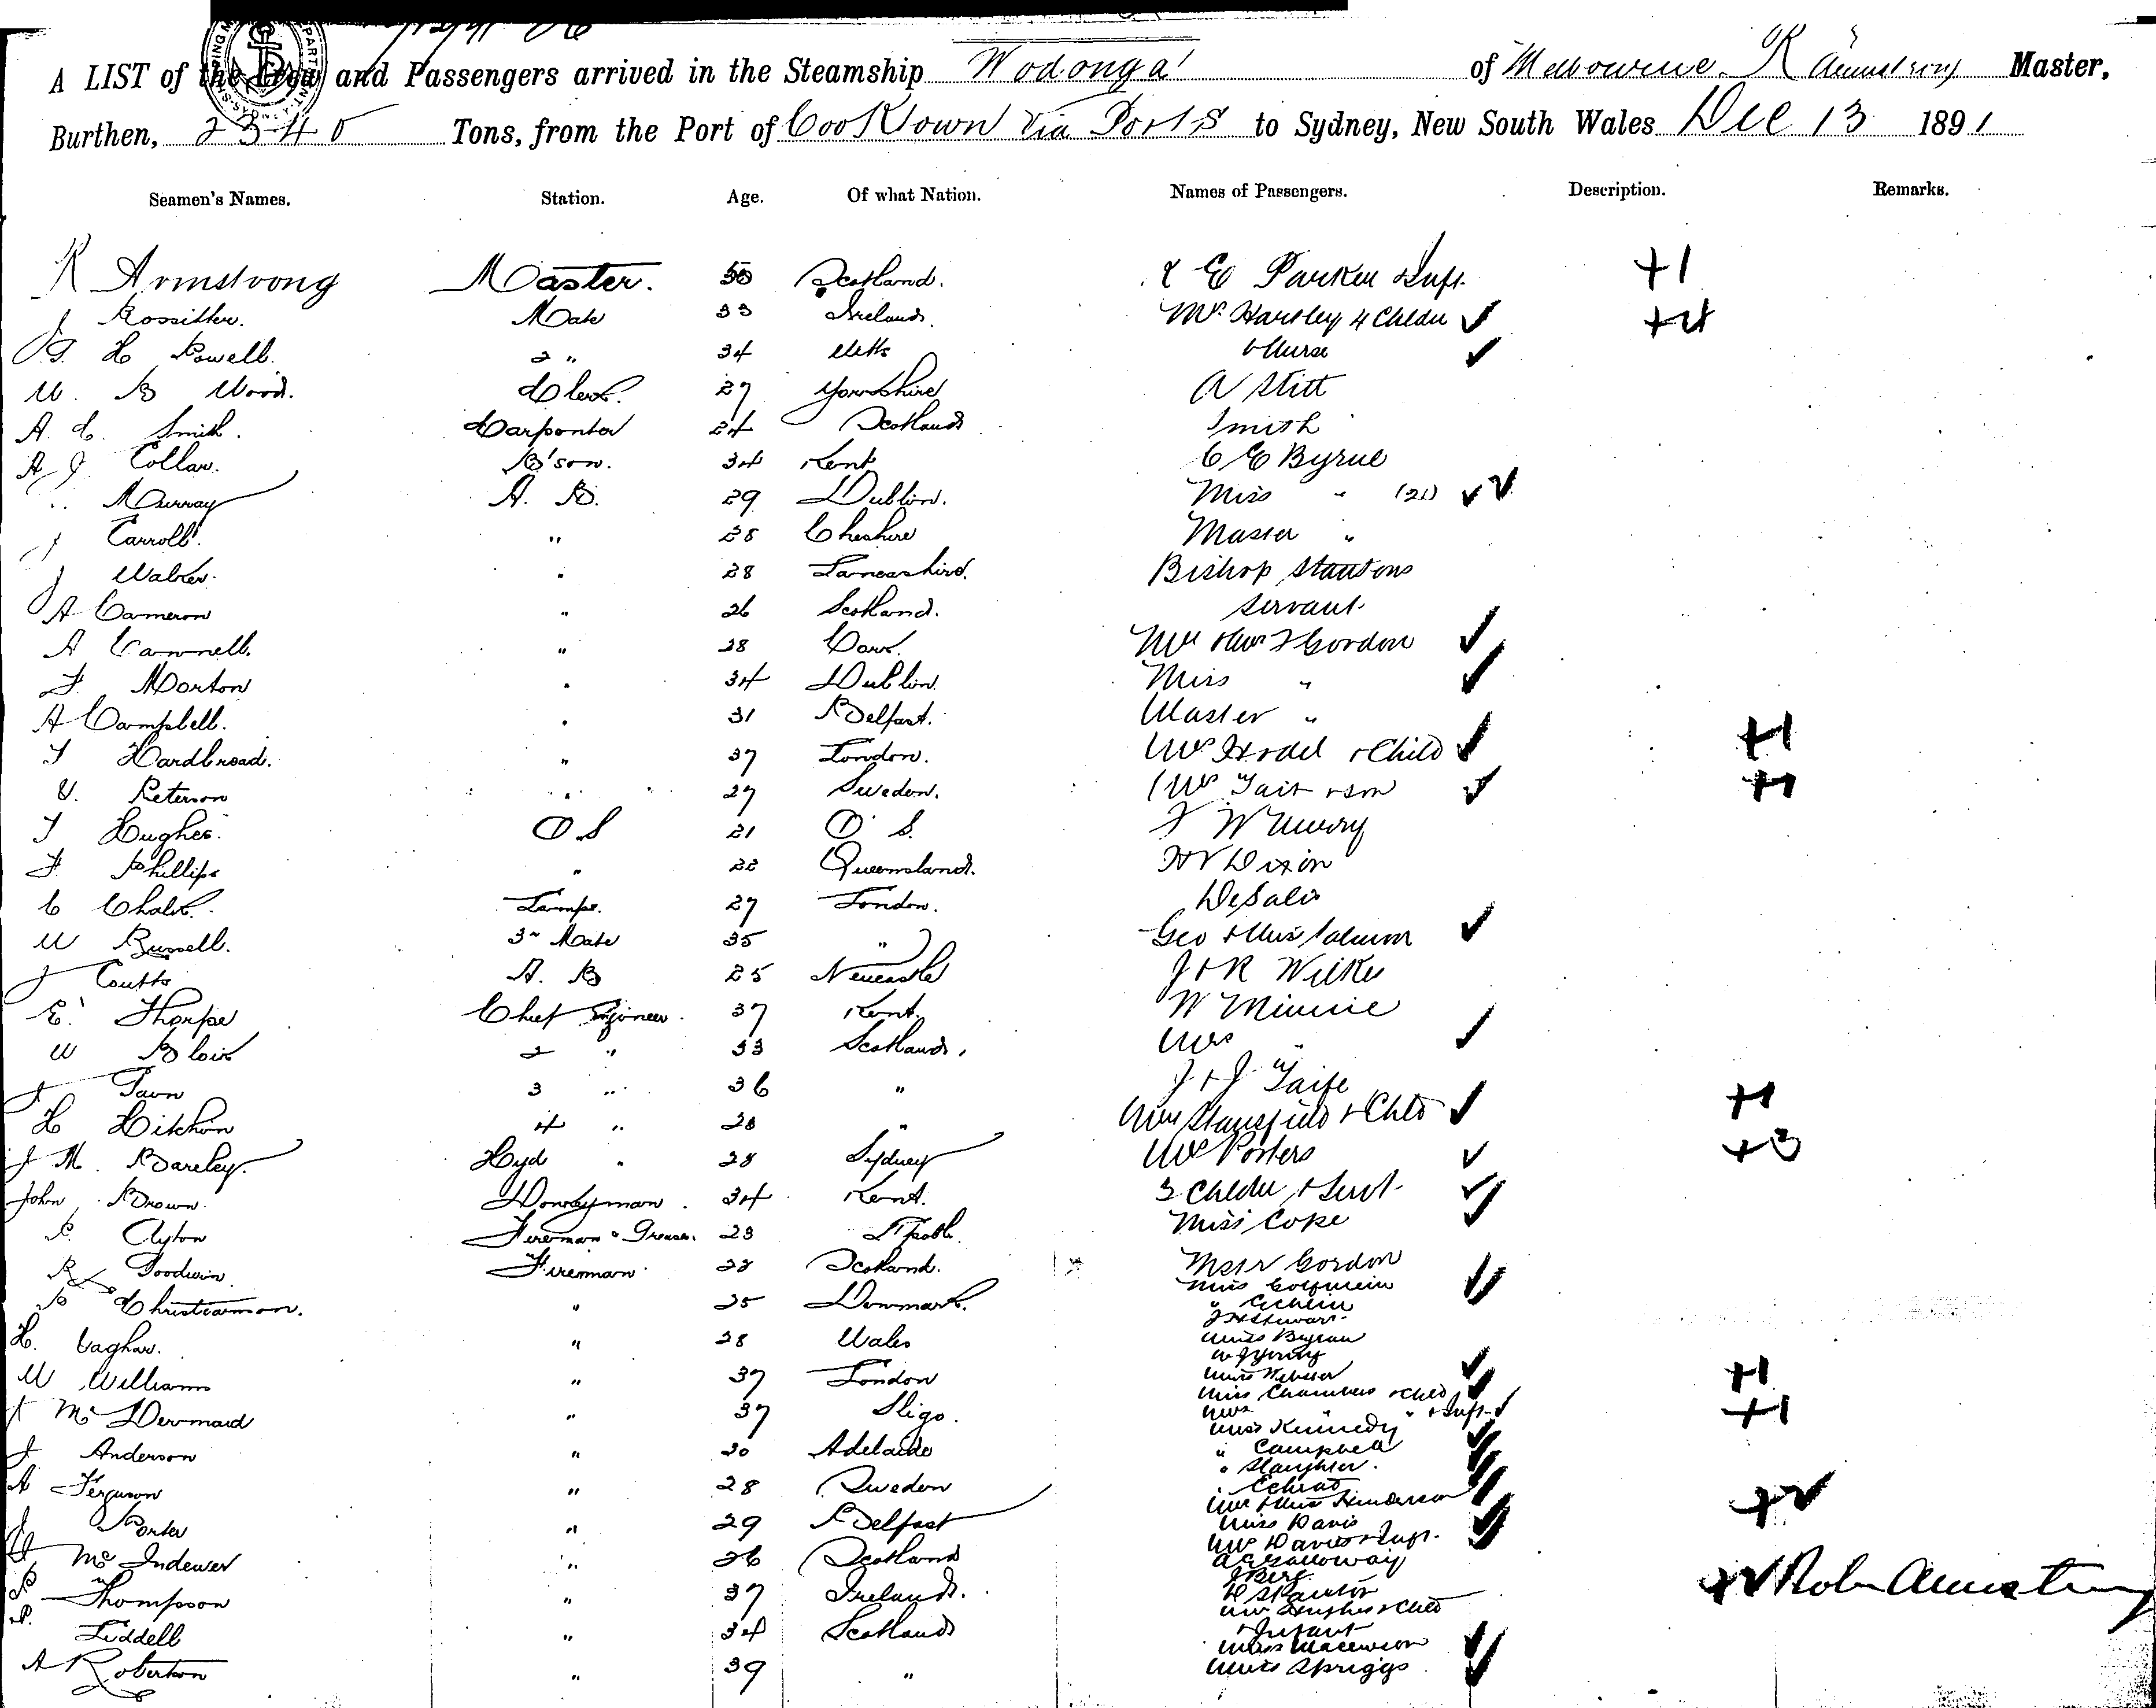 A LIST of the Crew and Passengers arrived in the Steamship Wodonga of Melbourne R Armstrong Master,
Burthen, 2340 Tons, from the Port of Cooktown via Ports to Sydney, New South Wales Dec 13 1891
Seamen's Names. Station. Age. Of what Nation. Names of Passengers. Description. Remarks.
R Armstrong Master. 50 Scotland. E Parker & Inft. +1
J Rossitter. Mate 33 Ireland. Mrs Hartley 4 Childn ✓ +4
G. H Powell. 2 " 34 & Nurse ✓
W. B Wood. Clerk. 27 Yorkshire A Stitt
A. C. Smith. Carpenter 24 Scotland Smith
A J Collar. B'son. 34 Kent C E Byrne
Murray A. B. 29 Dublin. Miss " (21) ✓✓
J Carroll. " 28 Cheshire Master "
J Walker. " 28 Lancashire. Bishop Stantons
A Cameron " 26 Scotland. Servant
A Cannell. " 28 Mr & Mrs F Gordon ✓
F. Morton " 34 Dublin. Miss " ✓
A Campbell. " 31 Belfast. Master "
J Hardbread. " 37 London. Mrs & Child ✓ +1
Peterson " 27 Sweden. Mrs Tait & son ✓ +1
J Hughes. O S 21 O. S. F W
F. Phillips " 22 Queensland. Dixon
C Chalk. Lamps. 27 London. DeSalis
W Russell. 3rd Mate 35 " Geo & Mrs ✓
J Coutts A. B 25 Newcastle J & R Wilkie
E. Thorpe Chief Engineer. 37 Kent. W Minnie
W Blair 2 " 33 Scotland. Mrs " ✓
J 3 " 36 " J & J Taife
H Hitchin 4 " 28 " Mrs Stansfield & Chld ✓ +1
J M. Bareley. Hyd " 28 Sydney Mrs Porters ✓ +3
John Brown. Donkeyman. 34 Kent. 3 Childn & Servt. ✓✓
Ayton Fireman & Greaser. 23 L'pool. Miss Cope ✓
R Goodwin. Fireman 28 Scotland. Gordon
Christianson. " 25 Denmark. Miss
"
J H Stewart
H. Vaghan. " 28 Wales Miss
W J Young
W Williams " 37 London Miss Webster ✓
Miss Chambers & Chld ✓ +1
J McDermaid " 37 Sligo. Mrs " & Inft. ✓ +1
Miss Kennedy
J. Anderson " 30 Adelaide " Campbell
" Slaughter.
A Ferguson " 28 Sweden
Mr & Mrs Henderson
J Porter " 29 Belfast Miss Davis
Mrs Davis & Inft.
Mc Indewer " 26 Scotland A C Galloway
J Berg
P Thompson " 37 Ireland. Robr Armstrong
Mrs Hughes & Chld
P. Liddell " 34 Scotland & Infant
Miss
A Roberton " 39 " Miss Spriggs ✓